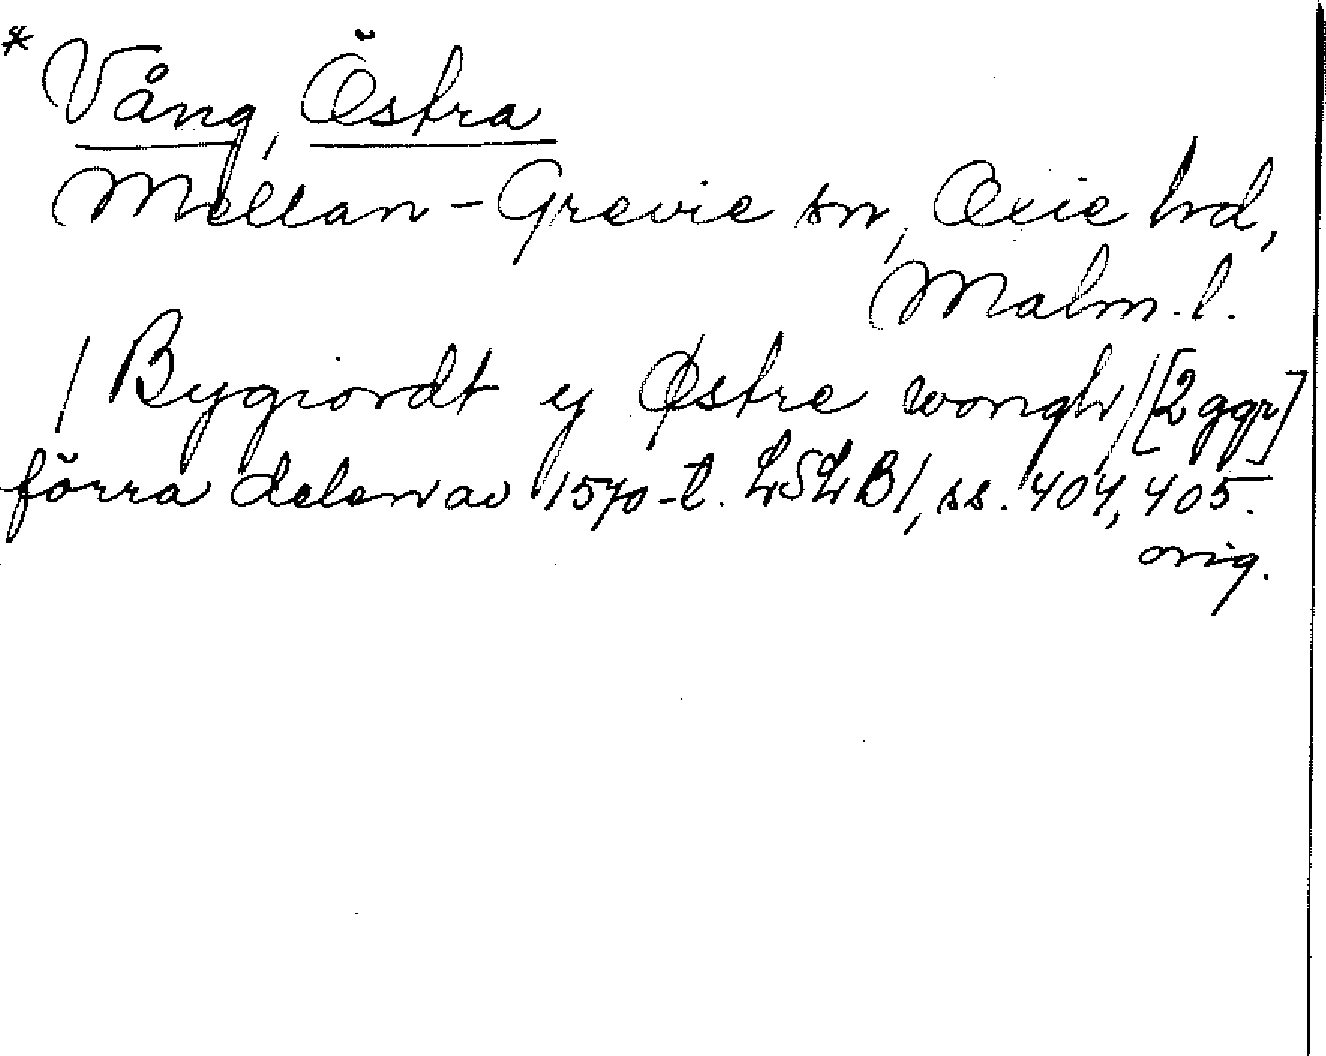 * Vång, Östra
Mellan-Grevie sn, Oxie hd,
Malm. l.
/ Bygiordt y Østre wongh / [2 ggr]
förra delen av 1570-t. LSLB1, ss. 404, 405.
orig.